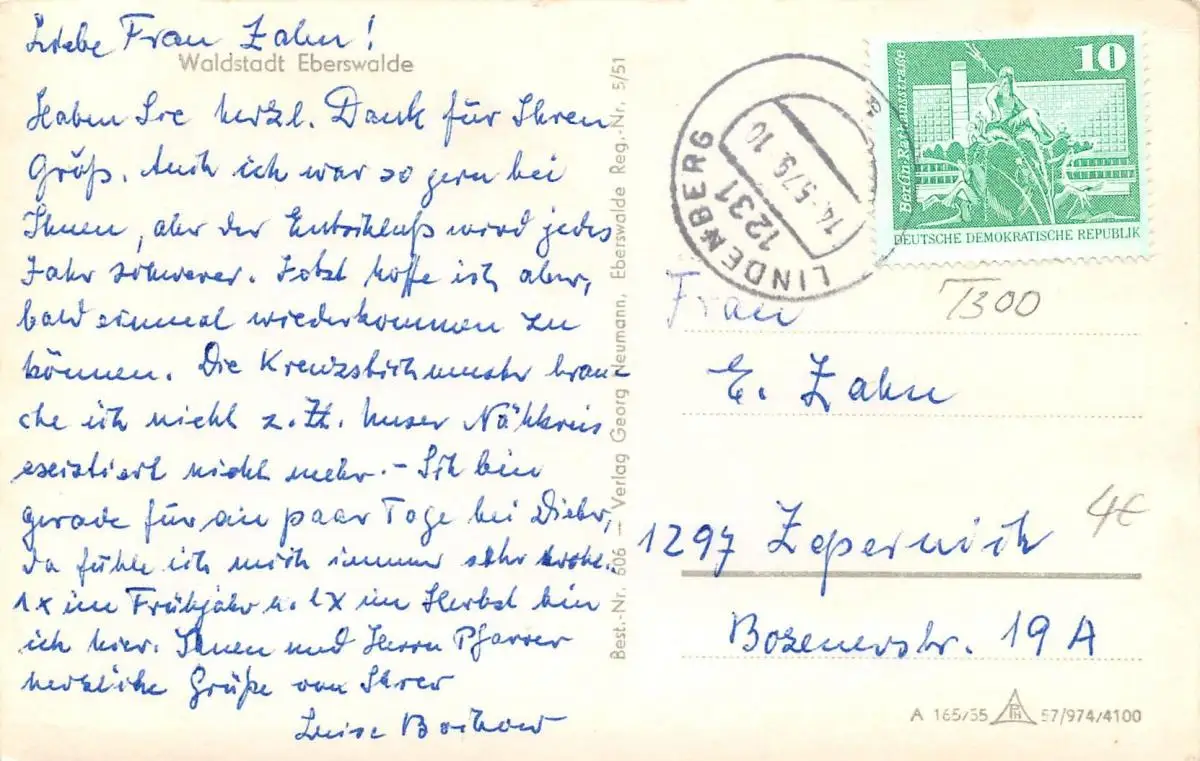 Liebe Frau Zahn!
Waldstadt Eberswalde
Haben Sie herzl. Dank für Ihren
Gruß. Auch ich war so gern bei
Ihnen, aber der Entschluß wird jedes
Jahr schwerer. Jetzt hoffe ich aber,
bald einmal wiederkommen zu
können. Die Kreuzstichmuster brau-
che ich nicht z. Zt. Unser Nähkreis
existiert nicht mehr. - Ich bin
gerade für ein paar Tage bei
da fühle ich mich immer sehr wohl.
1x im Frühjahr u. 1x im Herbst bin
ich hier. Ihnen und Herrn Pfarrer
herzliche Grüße von Ihrer
Luise
Best.-Nr. 606 — Verlag Georg Neumann, Eberswalde Reg.-Nr. 5/51
1231 LINDENBERG
14.-5.76.10
a
10
Berlin-Rathausstraße
DEUTSCHE DEMOKRATISCHE REPUBLIK
Frau
E. Zahn
1297 Zepernick
Bozenerstr. 19A
4€
A 165/55 57/974/4100